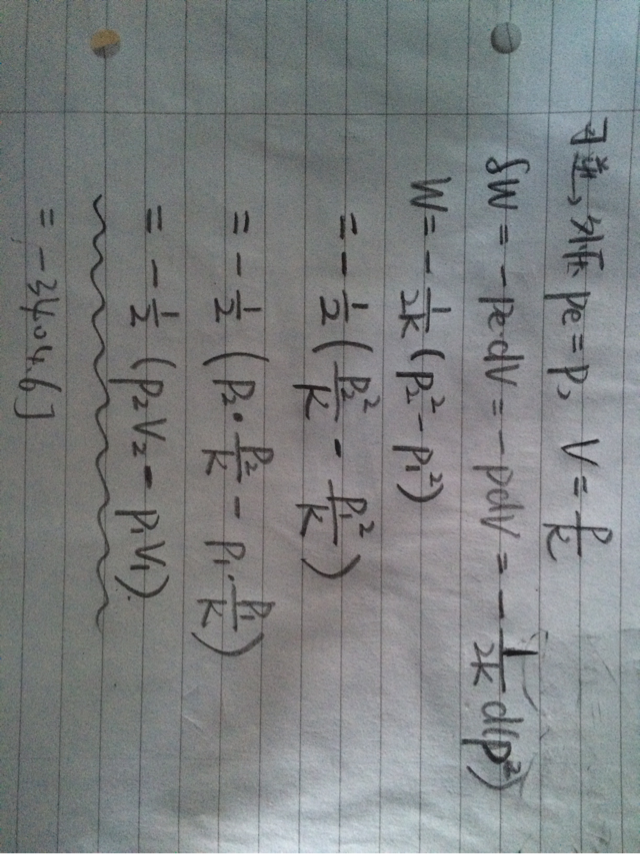 可逆，外压 pe=p， V=p/k
δW=-pedV=-pdV=-1/2k d(p²)
W=-1/2k(p₂²-p₁²)
=-1/2(p₂²/k-p₁²/k)
=-1/2(p₂·p₂/k-p₁·p₁/k)
=-1/2(p₂V₂-p₁V₁).
=-3404.6J